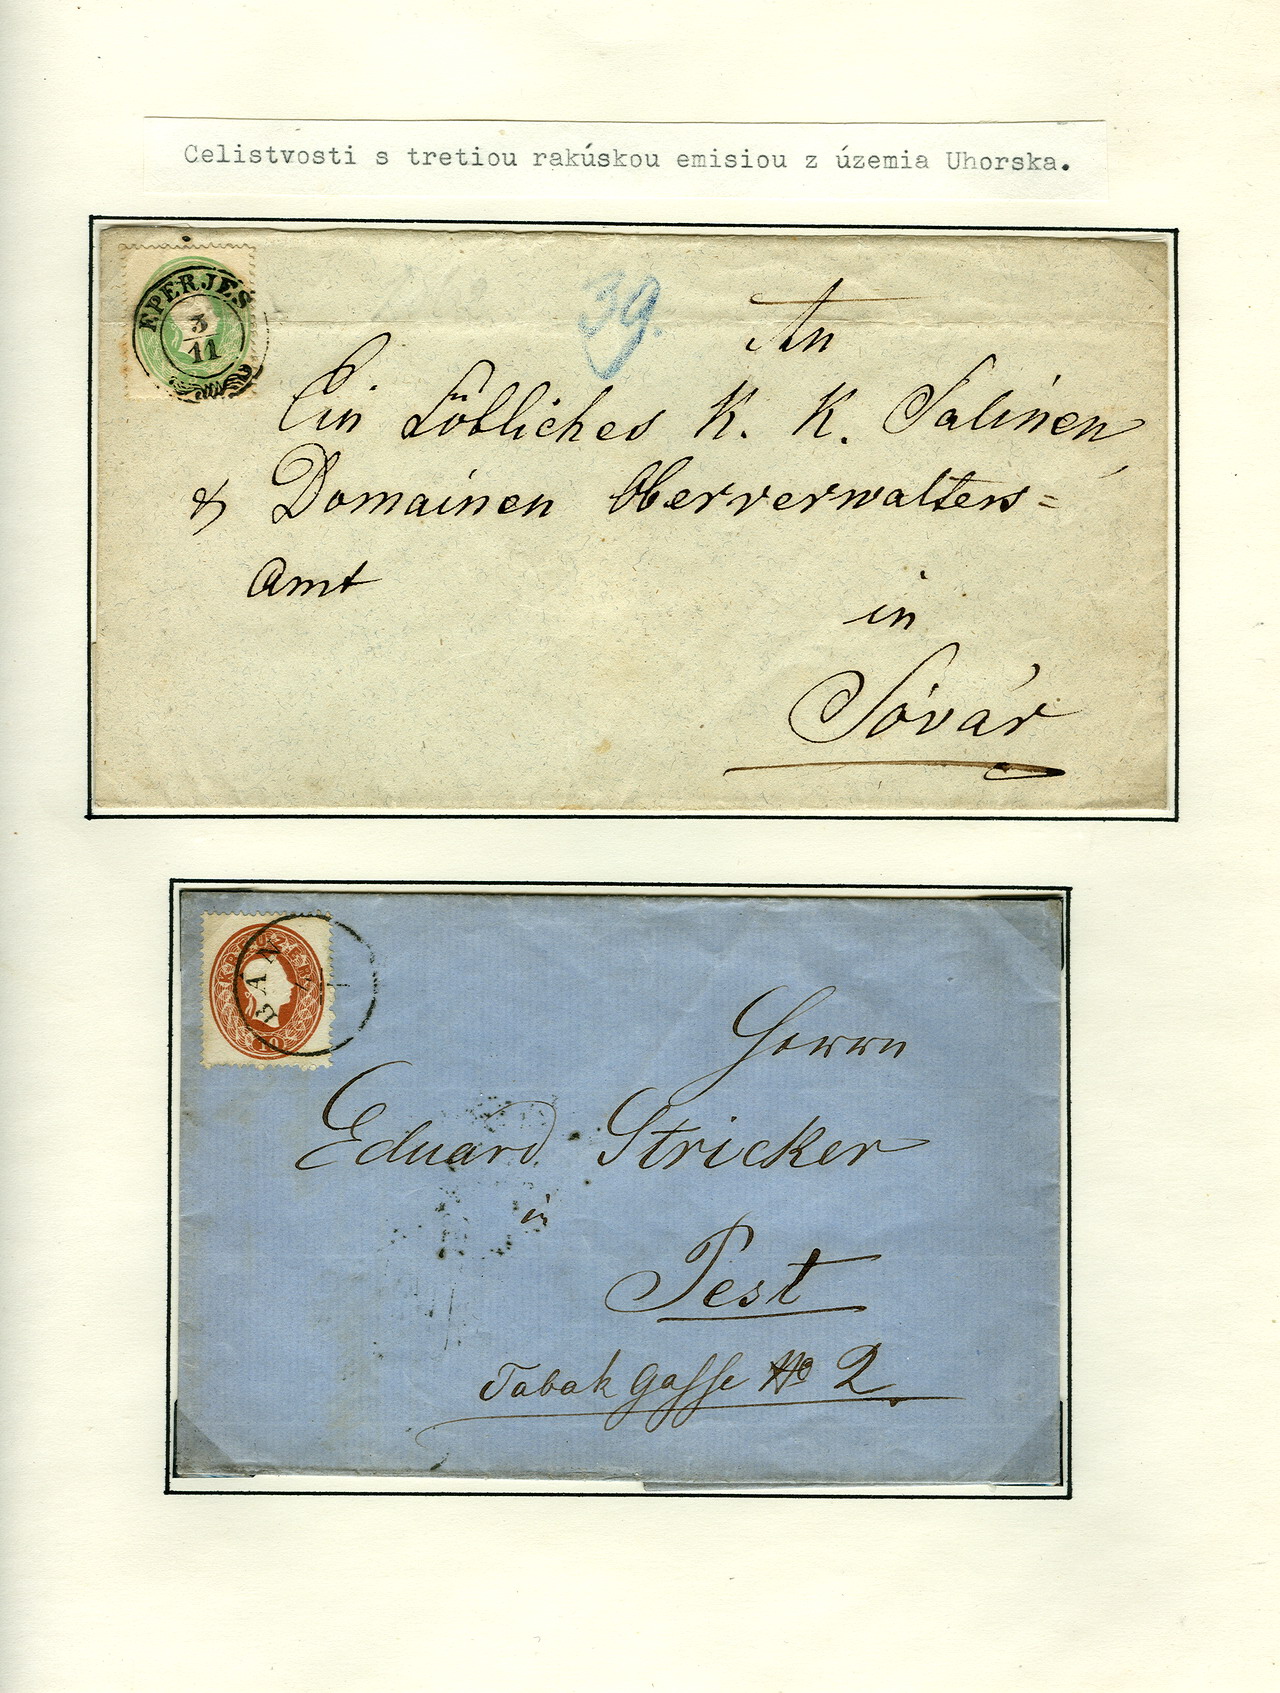 Celistvosti s tretiou rakúskou emisiou z územia Uhorska.
EPERJES
3
11
39.
An
Ein Löbliches K. K. Salinen
& Domainen Oberverwalters=
Amt
in
Sóvár
KREUZER
10
BAN
Herrn
Eduard Stricker
in
Pest
Tabak Gasse No 2